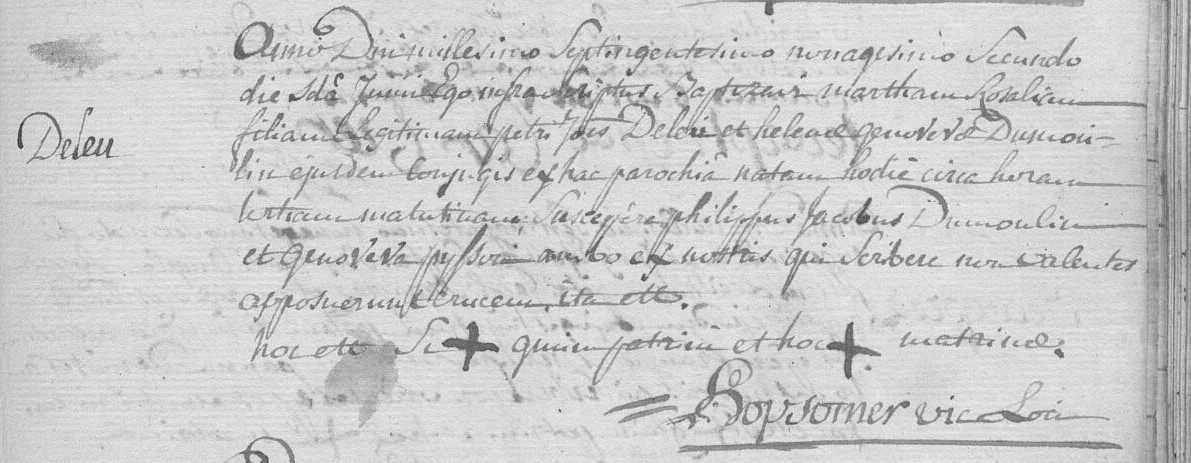 Anno Dni millesimo Septingentesimo nonagesimo Secundo
die 2dâ Junii Ego infrascriptus Baptizavi martham Rosaliam
Deleu
filiam Legitimam petri Jois Deleu et helenæ genovevæ Dumou-
lin ejusdem Conjugis ex hac parochiâ natam hodiè circa horam
tertiam matutinam. Suscepére philippus Jacobus Dumoulin
et genoveva ambo ex nostris qui Scribere non valentes
apposuerunt crucem. ita est.
hoc est Si + gnum patrini et hoc + matrinæ.
Hopsomer vic Loci